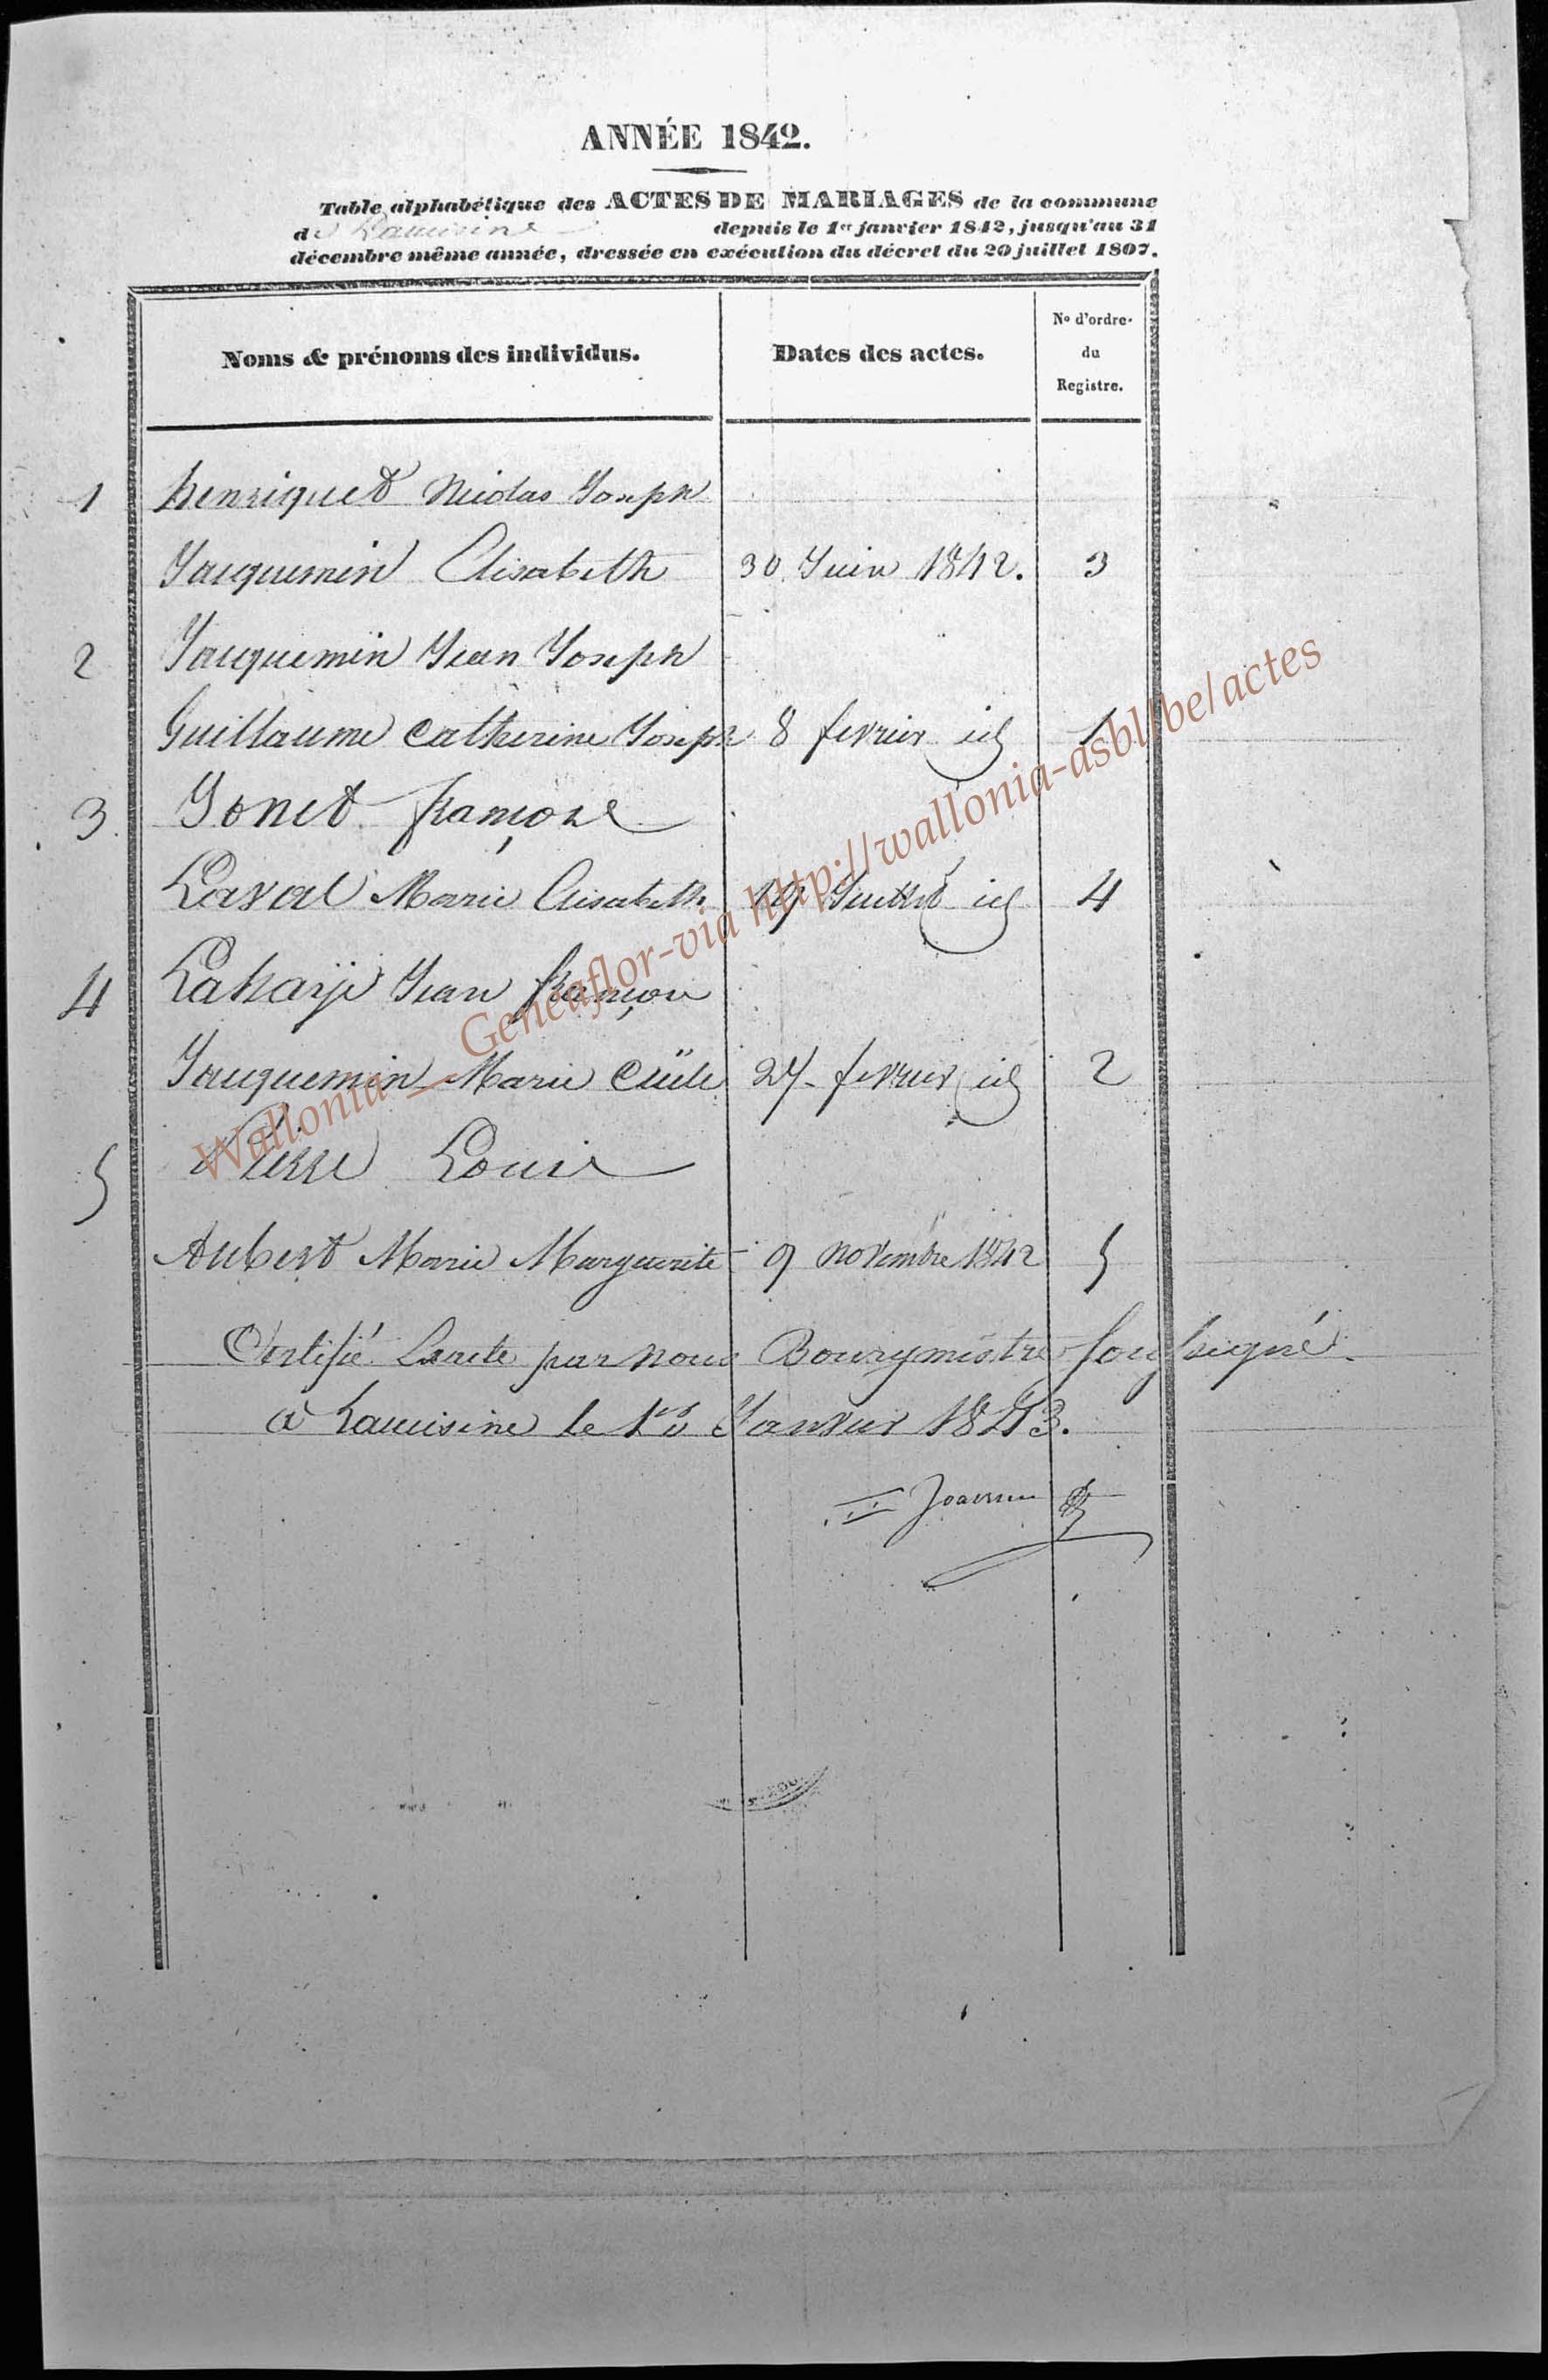 ANNÉE 1842.
Table alphabétique des ACTES DE MARIAGES de la commune
de Lacuisine depuis le 1er janvier 1842, jusqu'au 31
décembre même année, dressée en exécution du décret du 20 juillet 1807.
Noms & prénoms des individus. Dates des actes. No d'ordre du Registre.
1 henriquet Nicolas Joseph
Jacquemin Elisabeth 30 Juin 1842. 3
2 Jacquemin Jean Joseph
Guillaume Catherine Joseph 8 fevrier id 1
3 Jonet françois
Laval Marie Elisabeth 19 Juillet id 4
4 Lahaije Jean françois
Jacquemin Marie Cécile 27 fevrier id 2
5 Pierre Louis
Aubert Marie Marguerite 9 novembre 1842 5
Certifié par nous Bourgmestre sousigné
a Lacuisine le 1er Janvier 1843.
Wallonia_Geneaflor-via http://wallonia-asbl/be/actes